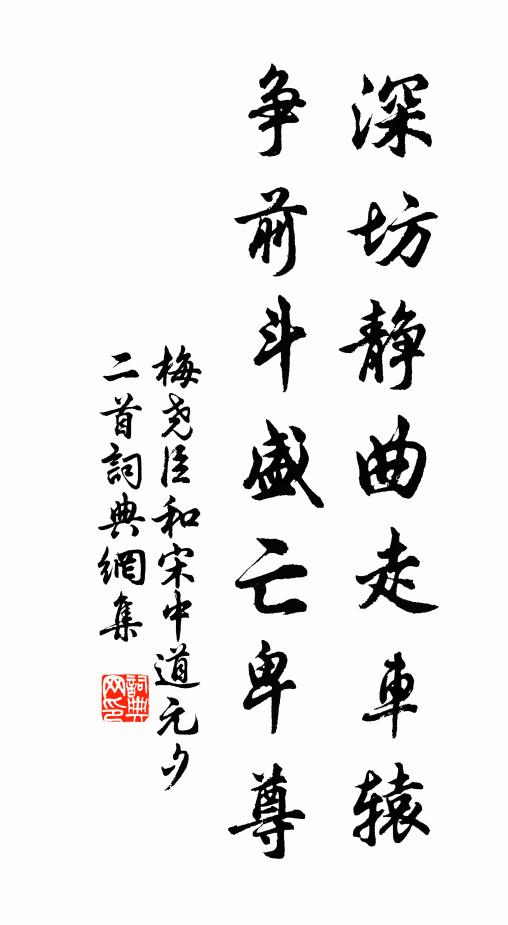 深坊静曲走車辕
争前斗盛亡卑尊
梅尧臣和宋中道元夕
二首詞典網集
詞典
网印